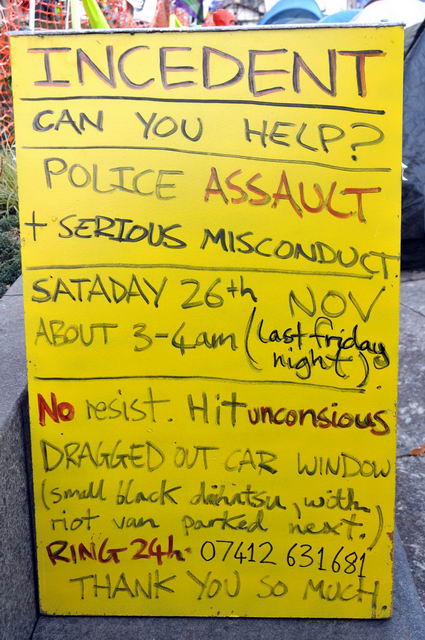 INCEDENT
CAN YOU HELP?
POLICE ASSAULT
+ SERIOUS MISCONDUCT
SATADAY 26th NOV
ABOUT 3-4am (last friday
night)
No resist. Hit unconsious
DRAGGED OUT CAR WINDOW
(small black daihatsu, with
riot van parked next.)
RING 24h. 07412 631681
THANK YOU SO MUCH.